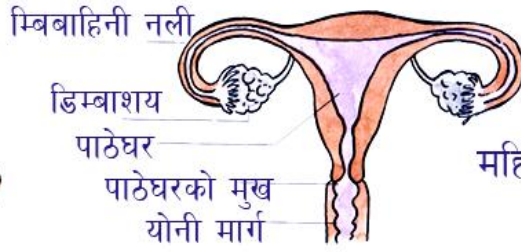 म्बिबाहिनी नली
डिम्बाशय
पाठेघर
महि
पाठेघरको मुख
योनी मार्ग